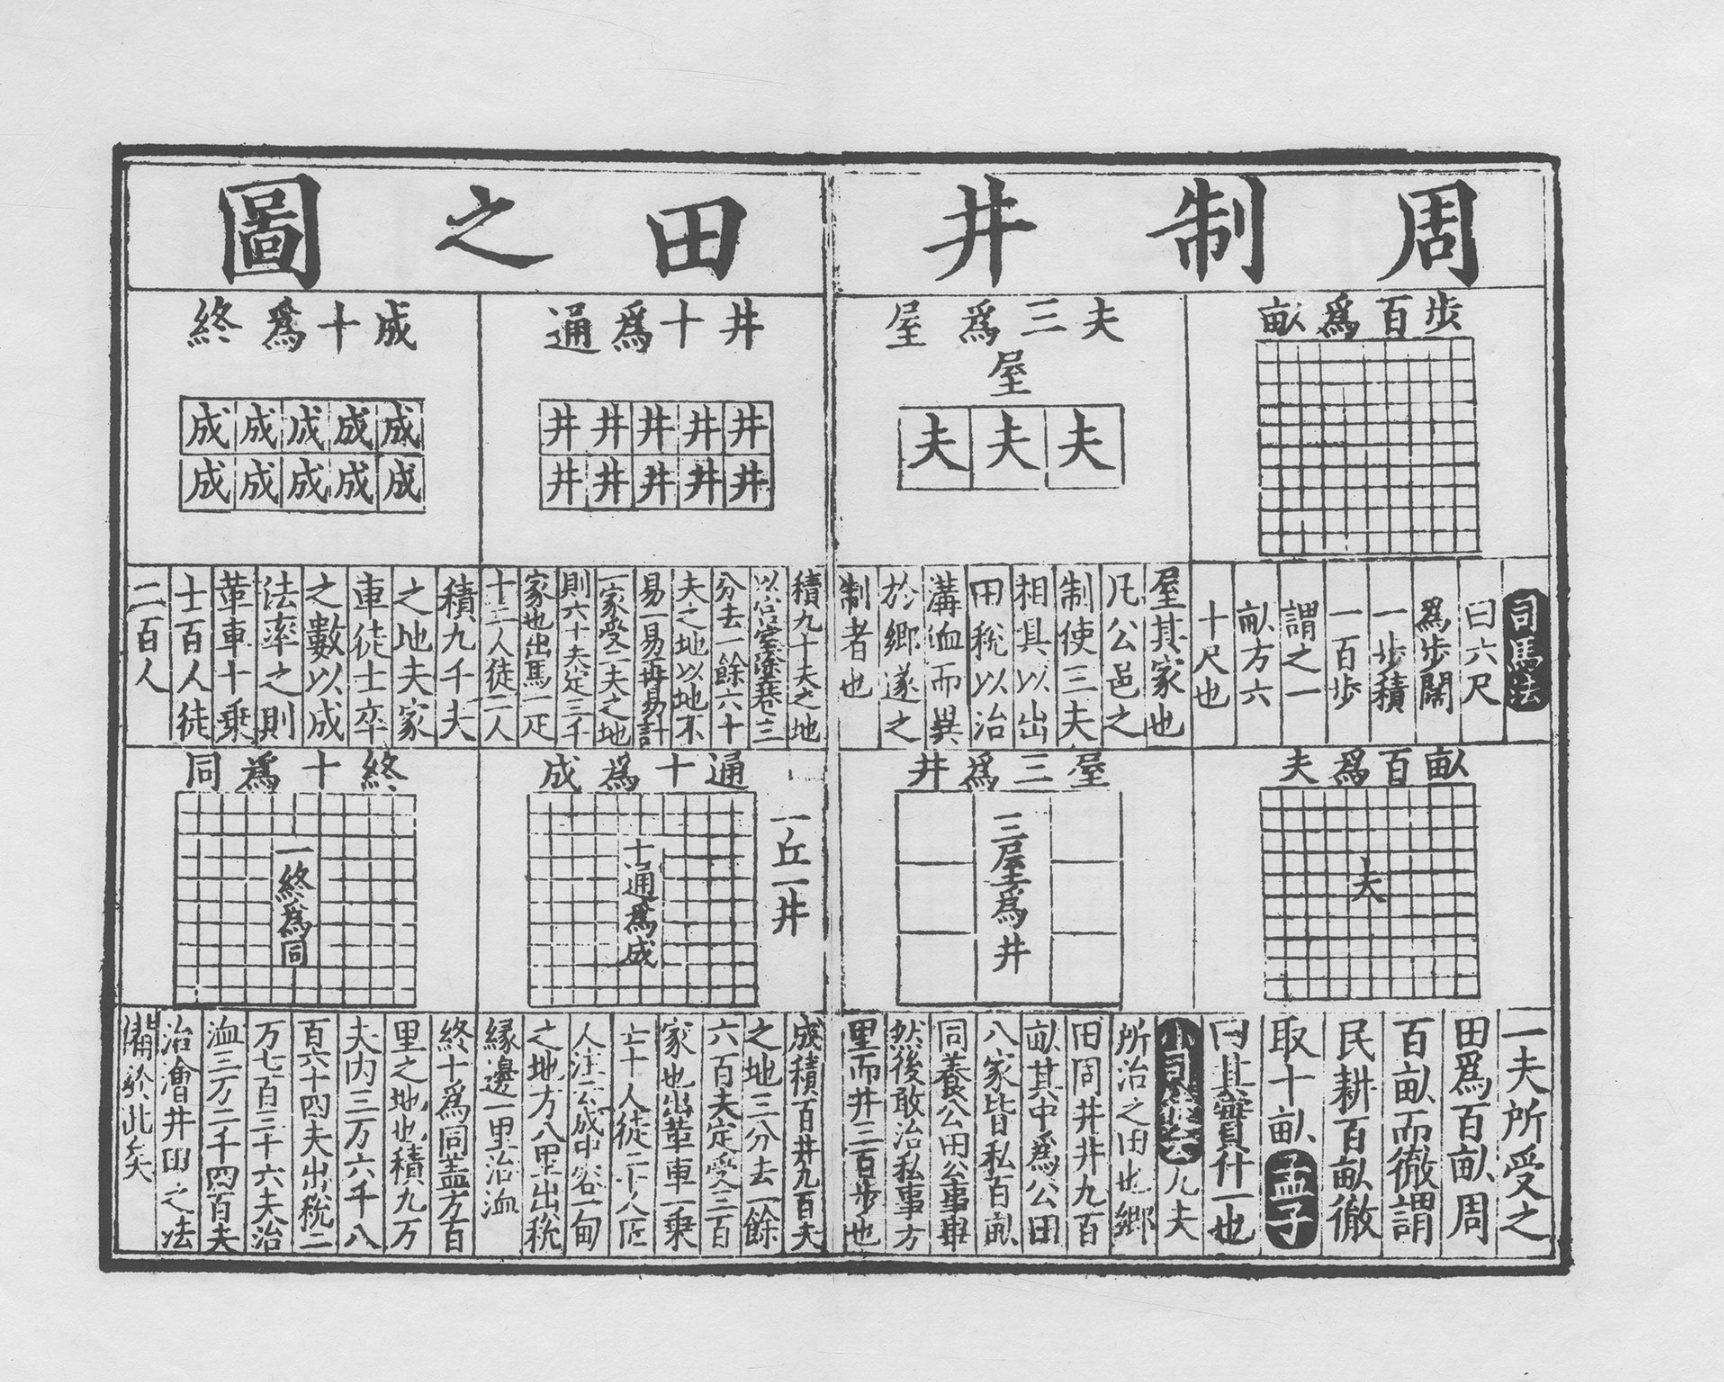 周制井田之圖
步百爲畝
司馬法
曰六尺
爲步闊
一步積
一百步
謂之一
畝方六
十尺也
畝百爲夫
夫
一夫所受之
田爲百畝周
百畝而徹謂
民耕百畝徹
取十畝孟子
曰其實什一也
夫三爲屋
屋
夫夫夫
屋其家也
凡公邑之
制使三夫
相具以出
田稅以治
溝洫而異
於鄉遂之
制者也
屋三爲井
三屋爲井
九夫
所治之田也鄉
田同井井九百
畝其中爲公田
八家皆私百畝
同養公田公事畢
然後敢治私事方
里而井三百步也
井十爲通
井井井井井
井井井井井
積九十夫之地
以宮室塗巷三
分去一餘六十
夫之地以地不
易一易再易計
一家受二夫之地
則六十夫定三十
家也出馬一疋
士一人徒二人
通十爲成
十通爲成
一丘一井
成積百井九百夫
之地三分去一餘
六百夫定受三百
家也出革車一乘
士十人徒二十人匠
人注云成中容一甸
之地方八里出稅
緣邊一里治洫
成十爲終
成成成成成
成成成成成
積九千夫
之地夫家
車徒士卒
之數以成
法率之則
革車十乘
士百人徒
二百人
終十爲同
一終爲同
終十爲同蓋方百
里之地也積九万
夫内三万六千八
百六十四夫出稅二
万七百三十六夫治
洫三万二千四百夫
治澮井田之法
備於此矣